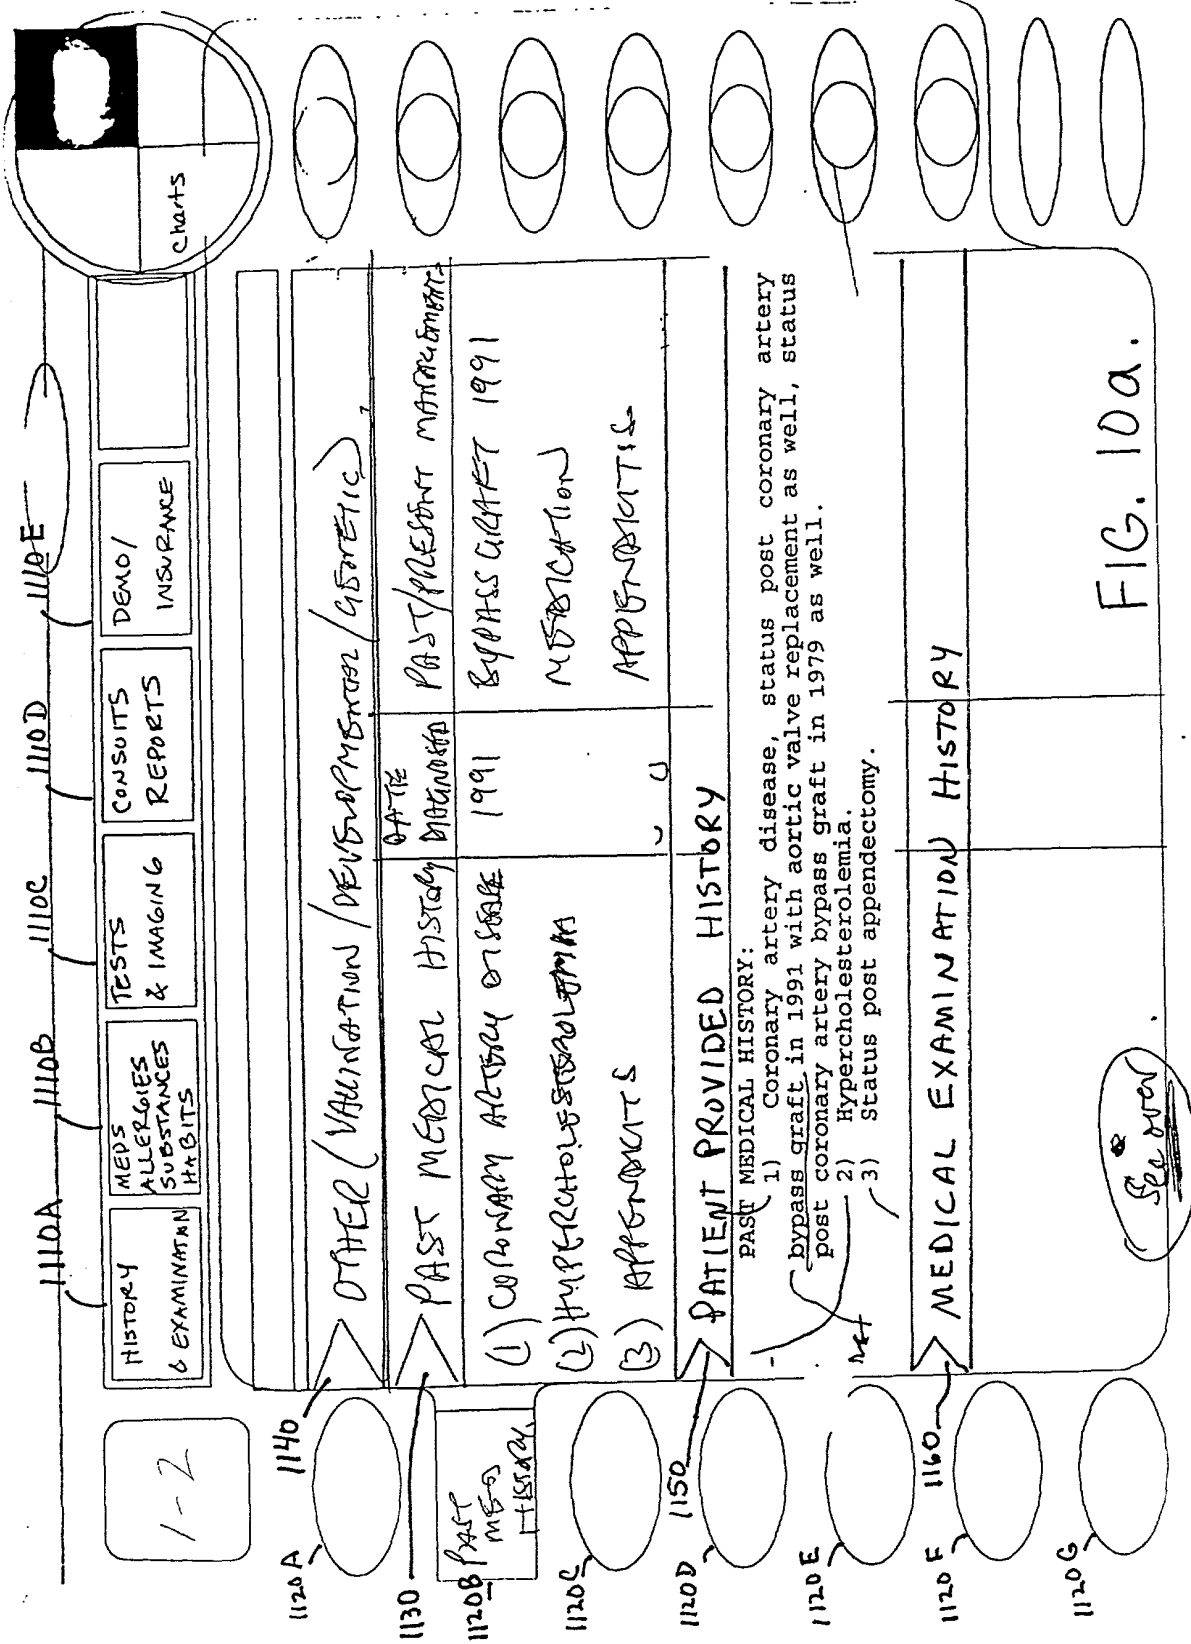 1110A
1110B
1110C
1110D
1110E
1-2
HISTORY
& EXAMINATION
MEDS
ALLERGIES
SUBSTANCES
HABITS
TESTS
& IMAGING
CONSULTS
REPORTS
DEMO/
INSURANCE
Charts
1120A
1140
OTHER (VACCINATION / DEVELOPMENTAL / GENETIC)
1130
PAST MEDICAL HISTORY
DATE
DIAGNOSED
PAST/PRESENT MANAGEMENT
1120B
PAST
MED
HISTORY
(1) CORONARY ARTERY DISEASE 1991 BYPASS GRAFT 1991
(2) HYPERCHOLESTEROLEMIA MEDICATION
1120C
(3) APPENDICITS APPENDICITIS
1150
PATIENT PROVIDED HISTORY
1120D
PAST MEDICAL HISTORY:
1) Coronary artery disease, status post coronary artery
bypass graft in 1991 with aortic valve replacement as well, status
post coronary artery bypass graft in 1979 as well.
2) Hypercholesterolemia.
3) Status post appendectomy.
1120E
1160
MEDICAL EXAMINATION HISTORY
1120F
1120G
See over
FIG. 10a.